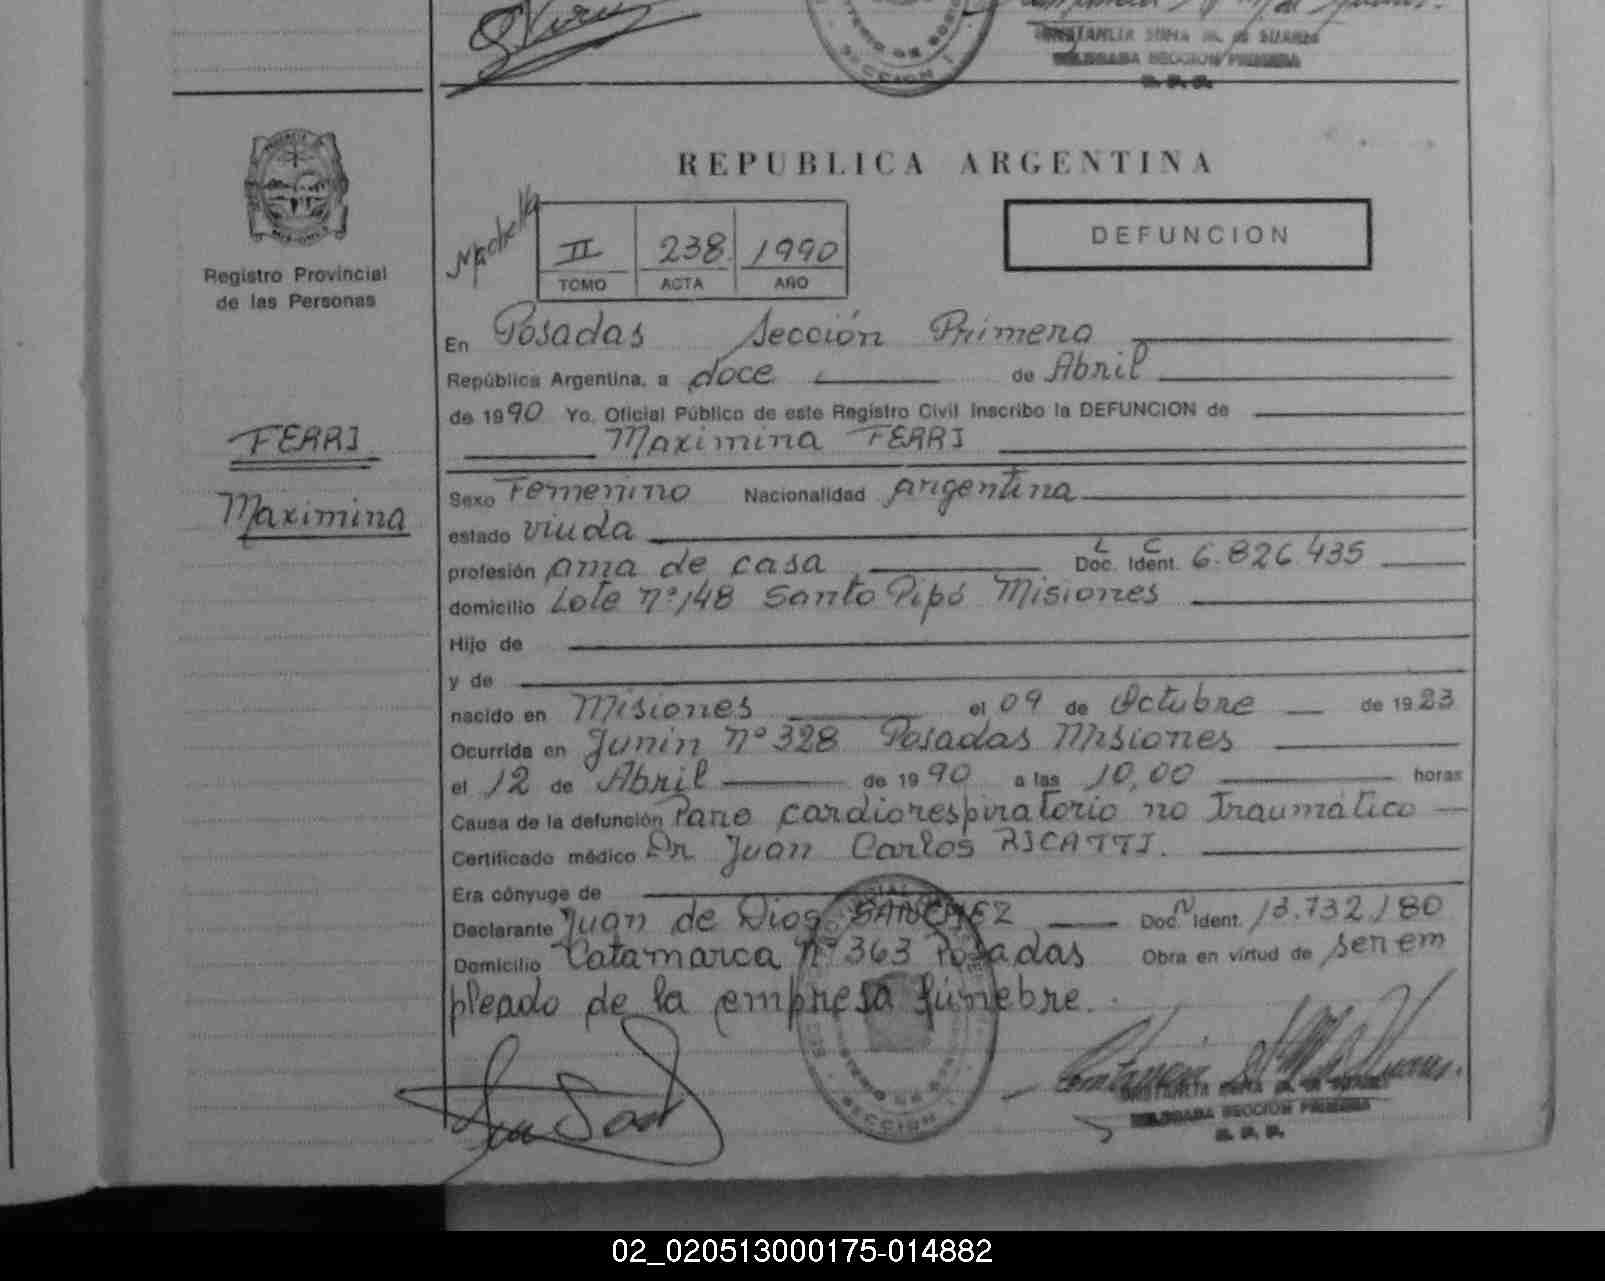 SECCION I
CONSTANCIA SUNA M. DE SUAREZ
DELEGADA SECCION PRIMERA
R. P. P.
Registro Provincial
de las Personas
REPUBLICA ARGENTINA
II 238 1990
TOMO ACTA AÑO
DEFUNCION
En Posadas Sección Primera
República Argentina, a doce de Abril
de 1990 Yo, Oficial Público de este Registro Civil Inscribo la DEFUNCION de
Maximina FERRI
FERRI
Maximina
Sexo Femenino Nacionalidad Argentina
estado viuda
profesión ama de casa L C Doc. Ident. 6.826.435
domicilio Lote nº 148 Santo Pipó Misiones
Hijo de
y de
nacido en Misiones el 09 de Octubre de 1923
Ocurrida en Junin nº 328 Posadas Misiones
el 12 de Abril de 1990 a las 10,00 horas
Causa de la defunción Paro cardiorespiratorio no Traumático
Certificado médico Dr Juan Carlos RICATTI.
Era cónyuge de
Declarante Juan de Dios SANCHEZ Doc. N Ident. 13.732.180
Domicilio Catamarca nº 363 Posadas Obra en virtud de ser em
pleado de la empresa fúnebre.
SECCION I
CONSTANCIA SUNA M. DE SUAREZ
DELEGADA SECCION PRIMERA
R. P. P.
02_020513000175-014882